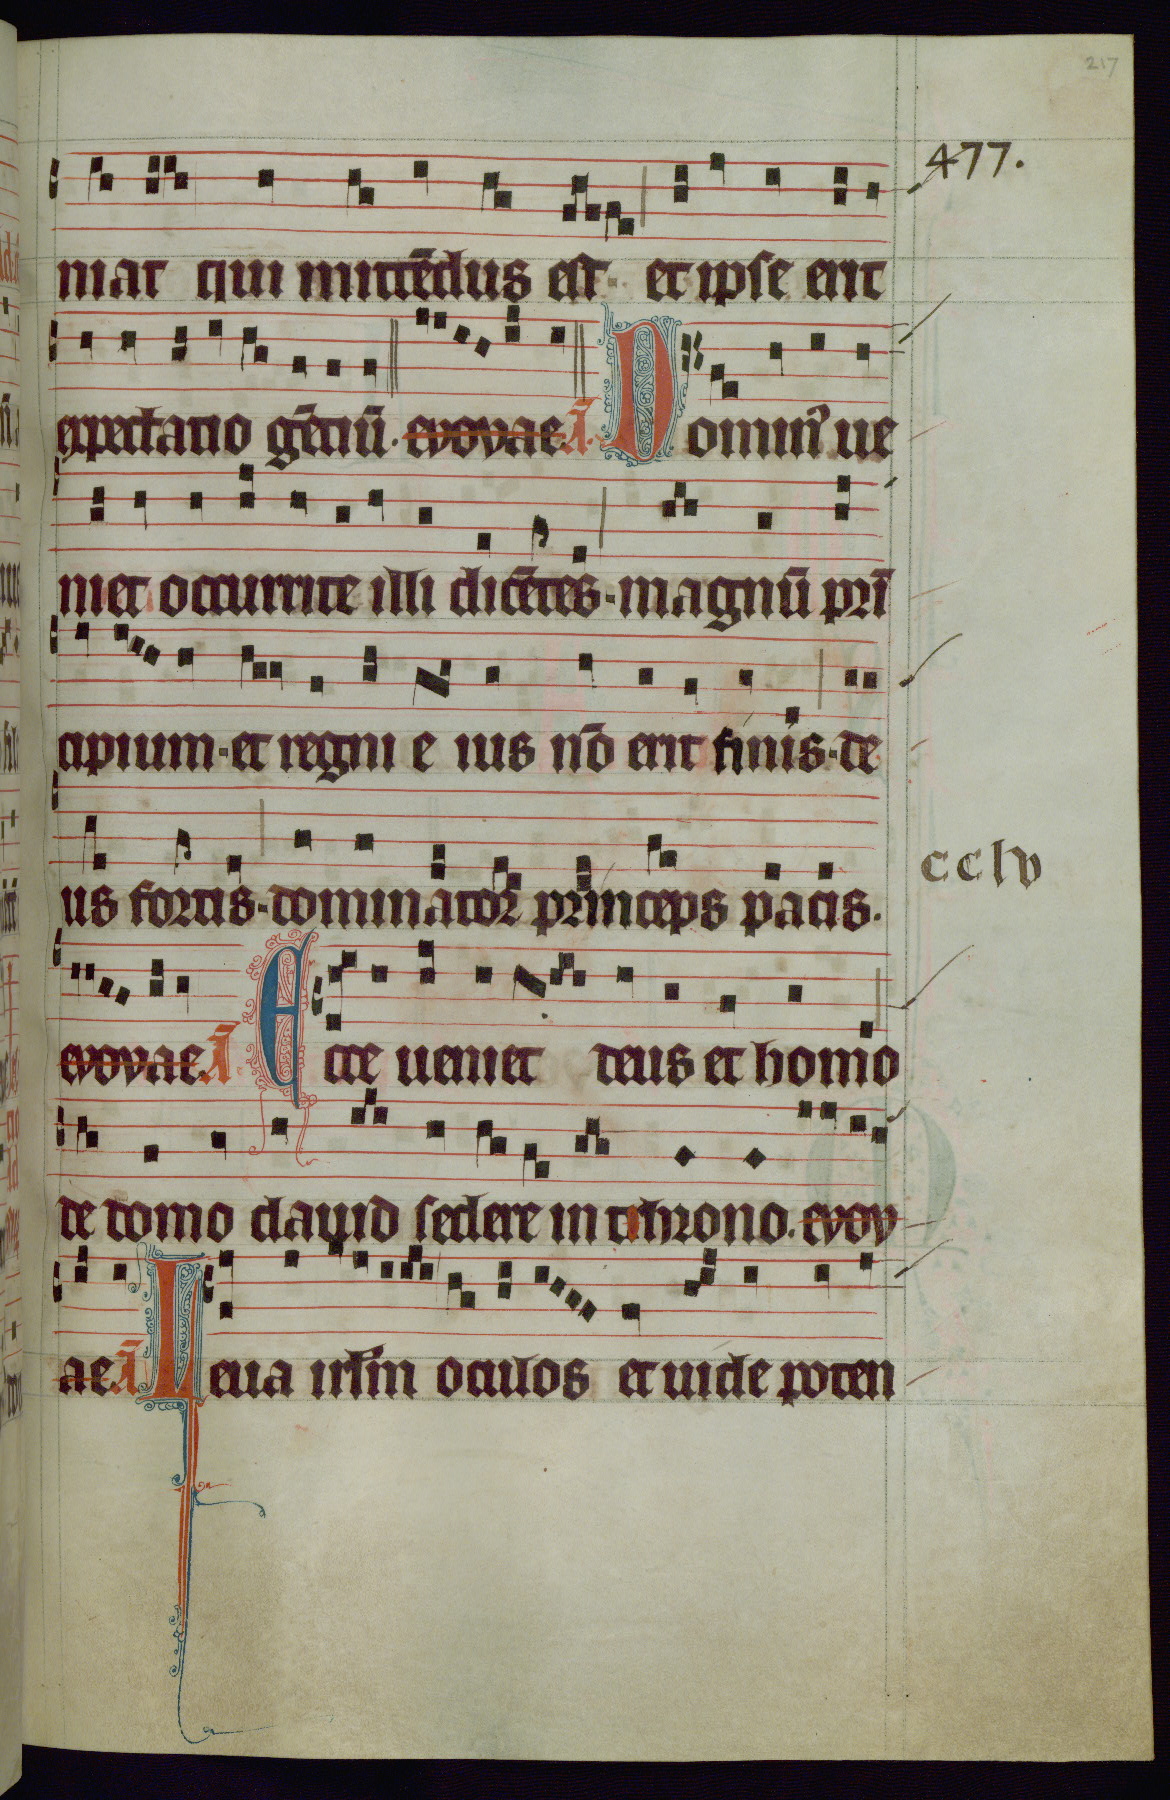 217
477.
niat qui mittēdus est· et ipse erit
expectatio gētiū. evovae A̅ Domin⁹ ue
niet occurrite illi dicētes·magnū prī
cipium·et regni e ius nō erit finis·de
us fortis·dominator princeps pacis.
cclv
evovae A̅ Ecce ueniet deus et homo
de domo dauid sedere in throno. evov
ae A̅ Leua irl̄m oculos et uide poten